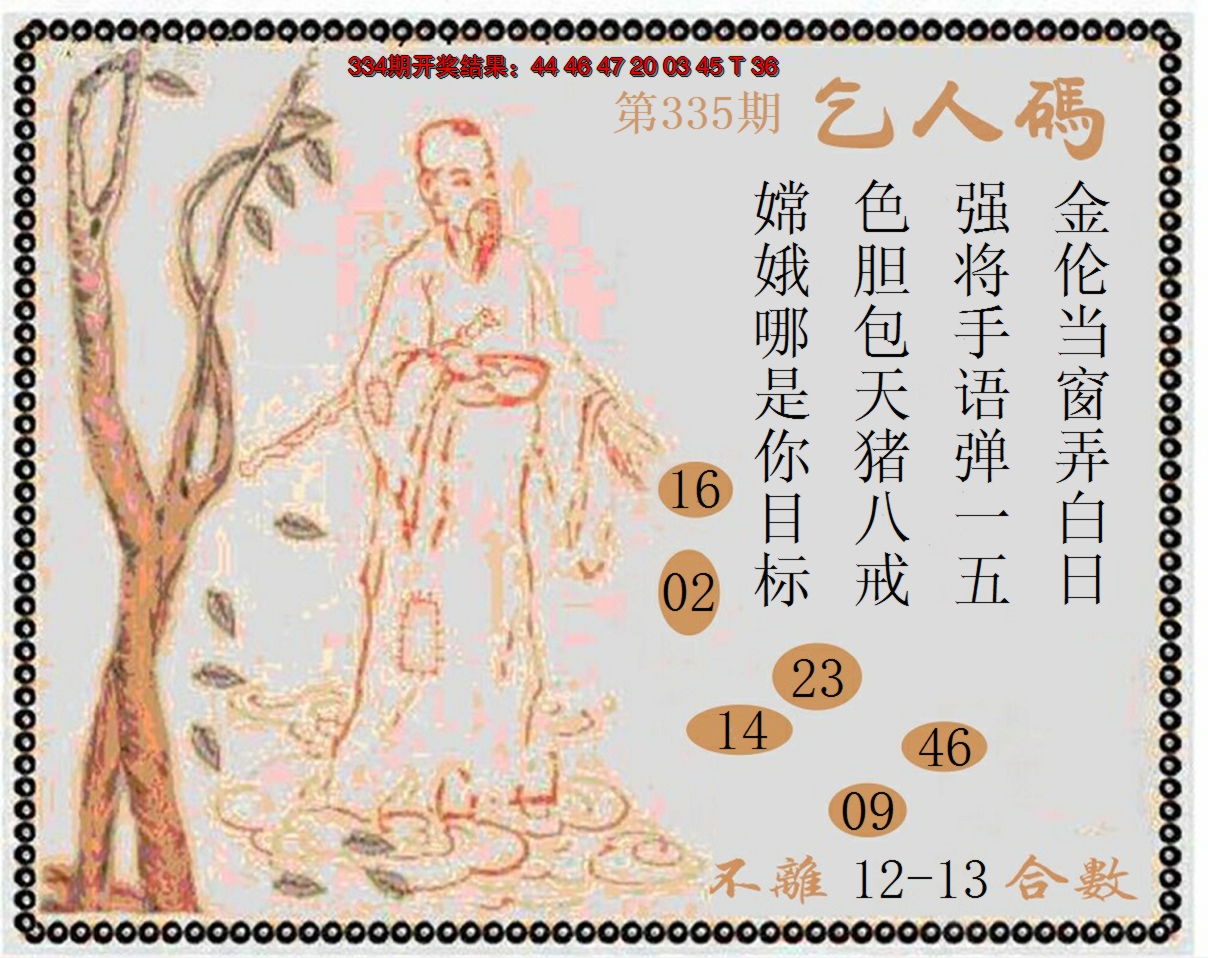 334期开奖结果：44 46 47 20 03 45 T 36
第335期 乞人碼
金伦当窗弄白日
强将手语弹一五
色胆包天猪八戒
嫦娥哪是你目标
16
02
23
14
46
09
不離 12-13 合數